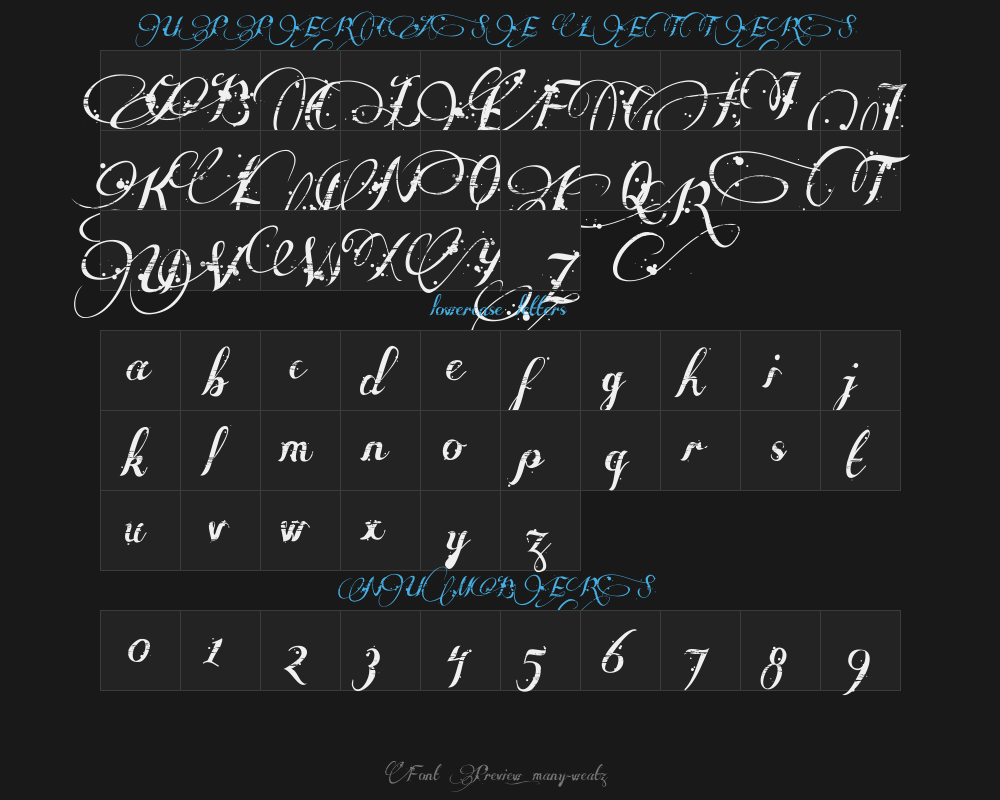 UPPERCASE LETTERS
A B C D E F G H I J
K L M N O P Q R S T
U V W X Y Z
lowercase letters
a b c d e f g h i j
k l m n o p q r s t
u v w x y z
NUMBERS
0 1 2 3 4 5 6 7 8 9
Font Preview_many-weatz